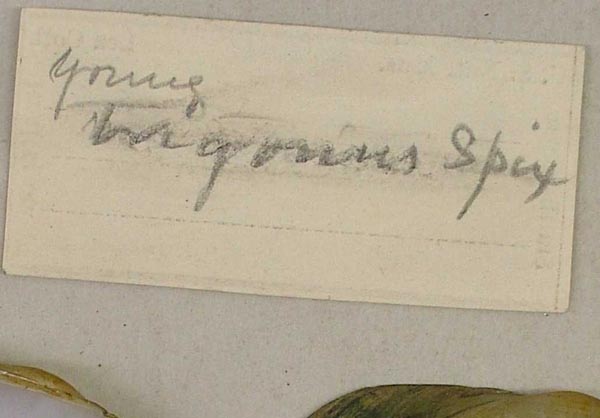 young
trigonus Spix